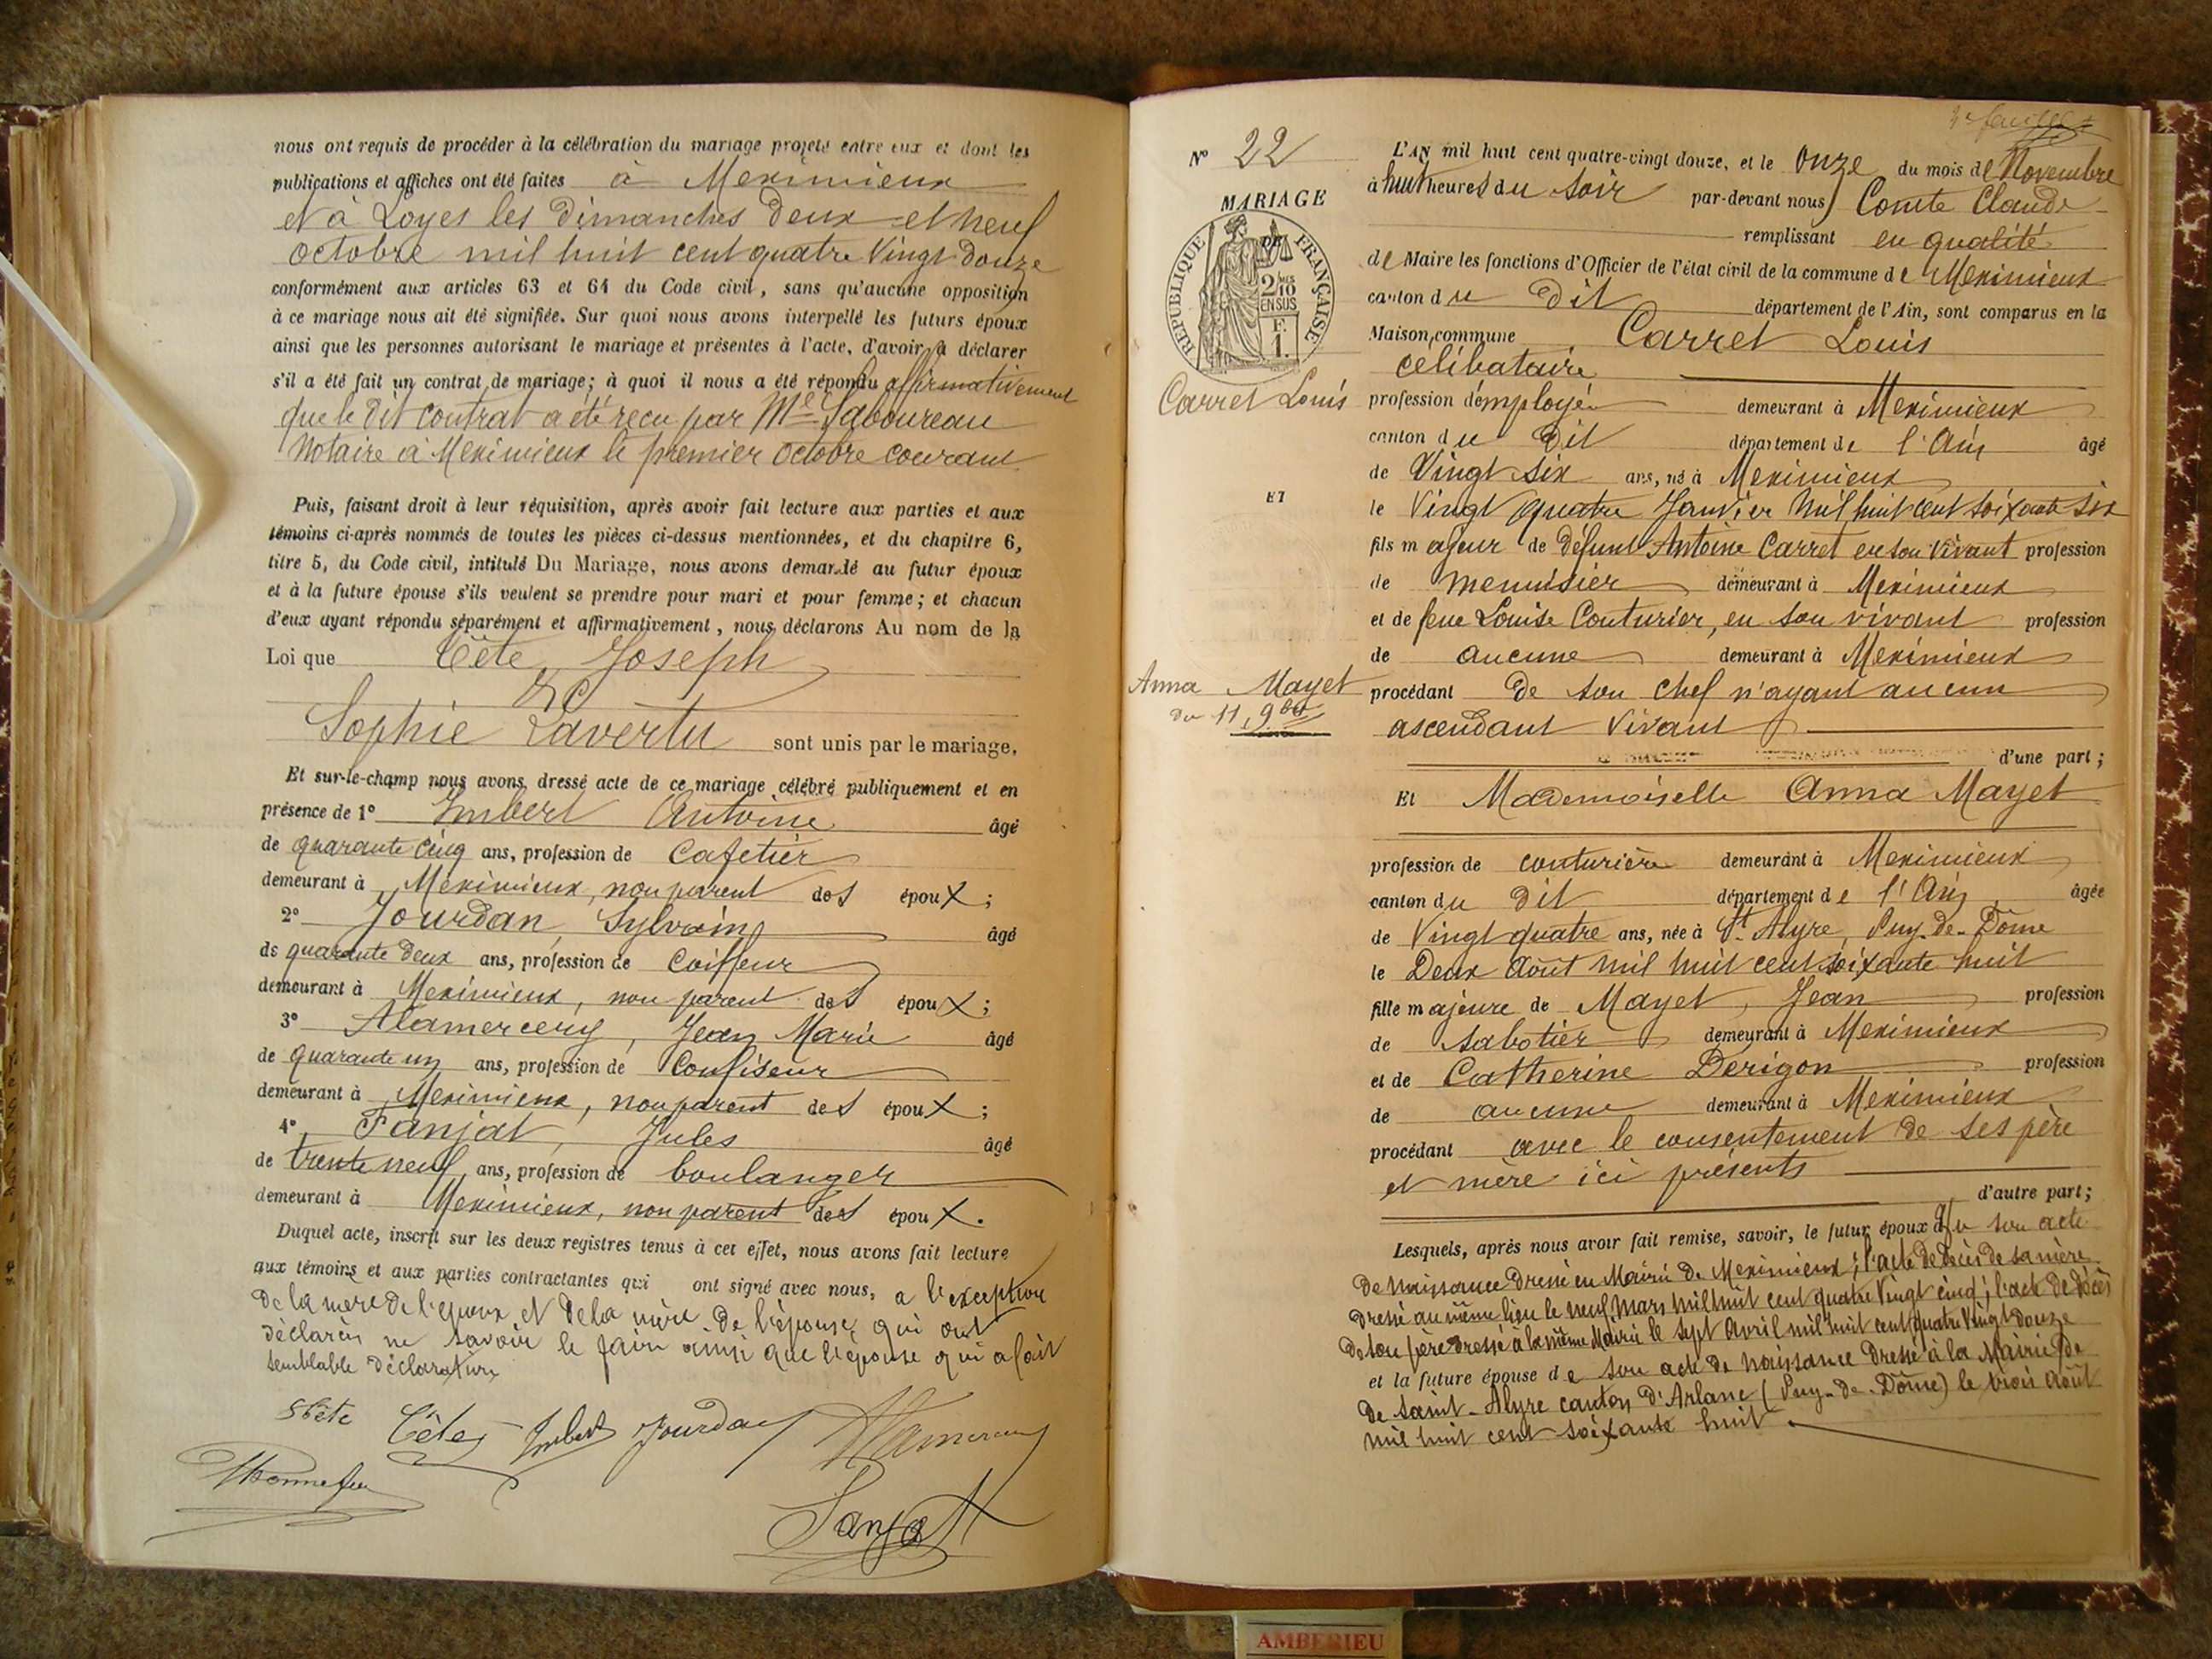 nous ont requis de procéder à la célébration du mariage projeté entre eux et dont les
publications et affiches ont été faites à Meximieux
et à Loyes les Dimanches Deux et neuf
Octobre mil huit cent quatre Vingt Douze
conformément aux articles 63 et 64 du Code civil, sans qu'aucune opposition
à ce mariage nous ait été signifiée. Sur quoi nous avons interpellé les futurs époux
ainsi que les personnes autorisant le mariage et présentes à l'acte, d'avoir à déclarer
s'il a été fait un contrat de mariage; à quoi il nous a été répondu affirmativement
que le dit contrat a été reçu par Me Laboureau
Notaire à Meximieux le premier octobre courant
Puis, faisant droit à leur réquisition, après avoir fait lecture aux parties et aux
témoins ci-après nommés de toutes les pièces ci-dessus mentionnées, et du chapitre 6,
titre 5, du Code civil, intitulé Du Mariage, nous avons demandé au futur époux
et à la future épouse s'ils veulent se prendre pour mari et pour femme; et chacun
d'eux ayant répondu séparément et affirmativement, nous déclarons Au nom de la
Loi que Tête Joseph
Et
Sophie Lavertu sont unis par le mariage.
Et sur-le-champ nous avons dressé acte de ce mariage célébré publiquement et en
présence de 1° Imbert Antoine âgé
de quarante cinq ans, profession de Cafetier
demeurant à Meximieux, non parent des époux;
2° Jourdan Sylvain âgé
de quarante deux ans, profession de Coiffeur
demeurant à Meximieux, non parent des époux;
3° Alamercery, Jean Marie âgé
de quarante un ans, profession de Confiseur
demeurant à Meximieux, non parent des époux;
4° Fanjat, Jules âgé
de trente neuf ans, profession de boulanger
demeurant à Meximieux, non parent des époux.
Duquel acte, inscrit sur les deux registres tenus à cet effet, nous avons fait lecture
aux témoins et aux parties contractantes qui ont signé avec nous, à l'exception
de la mère de l'époux et de la mère de l'épouse, qui ont
déclarés ne savoir le faire ainsi que l'épouse qui a fait
semblable déclaration
Tête Imbert Jourdan
Fanjat
N° 22
MARIAGE
DE
RÉPUBLIQUE FRANÇAISE
2/10 EN SUS
F.
1.
Carret Louis
ET
Anna Mayet
du 11, 9bre
L'AN mil huit cent quatre-vingt douze, et le Onze du mois de Novembre
à huit heures du soir par-devant nous Comte Claude
remplissant en qualité
de Maire les fonctions d'Officier de l'état civil de la commune de Meximieux
canton du Dit département de l'Ain, sont comparus en la
Maison commune Carret Louis
célibataire
profession d'employé demeurant à Meximieux
canton du Dit département de l'Ain âgé
de Vingt six ans, né à Meximieux
le Vingt quatre Janvier Mil huit cent soixante six
fils majeur de défunt Antoine Carret en son vivant profession
de menuisier demeurant à Meximieux
et de feue Louise Couturier, en son vivant profession
de aucune demeurant à Meximieux
procédant de son chef n'ayant aucun
ascendant vivant
d'une part;
Et Mademoiselle Anna Mayet
profession de couturière demeurant à Meximieux
canton du Dit département de l'Ain âgée
de Vingt quatre ans, née à St Alyre, Puy-de-Dôme
le Deux Août mil huit cent soixante huit
fille majeure de Mayet, Jean profession
de Sabotier demeurant à Meximieux
et de Catherine Derigon profession
de aucune demeurant à Meximieux
procédant avec le consentement de ses père
et mère ici présents
d'autre part;
Lesquels, après nous avoir fait remise, savoir, le futur époux de son acte
de Naissance Dressé en Mairie de Meximieux; l'acte de Décès de sa mère
dressé au même lieu le neuf Mars mil huit cent quatre Vingt cinq; l'acte de Décès
de son père dressé à la même Mairie le sept Avril mil huit cent quatre Vingt douze
et la future épouse de son acte de Naissance Dressé à la Mairie de
de Saint-Alyre canton d'Arlanc (Puy-de-Dôme) le trois Août
mil huit cent soixante huit
AMBERIEU